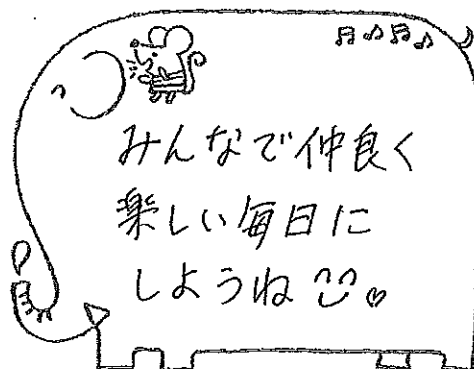 みんなで仲良く
楽しい毎日に
しようね